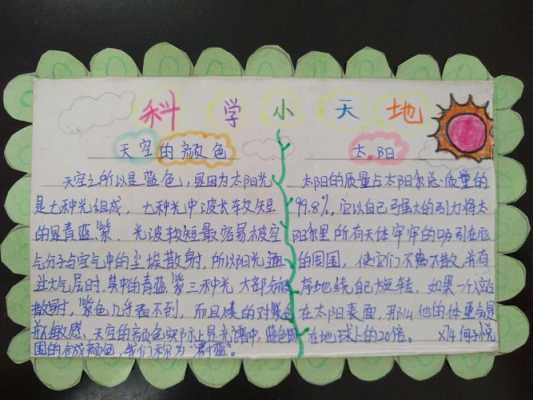 科学小天地
天空的颜色
天空之所以是蓝色,是因为太阳光
是七种光组成,七种光中波长较短
的是青蓝紫,光波较短最容易被空
气分子与空气中的尘埃散射,所以阳光通
过大气层时,其中的青蓝紫三种光大部分被
散射,紫色几乎看不到,而且 的对紫色
敏感,天空的颜色实际上是光谱中,蓝色
围的合成颜色,我们称为"蔚蓝"。
太阳
太阳的质量占太阳系总质量的
99.8%,它以自己强大的引力将太
阳系里所有天体牢牢的吸引在它
的周围,使它们不离不散,井有
序地绕自己旋转,如果一个人站
在太阳表面,那么他的体重会是
在地球上的20倍。